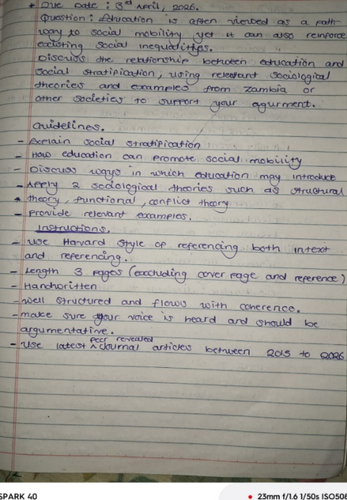 * Due Date : 3rd April, 2026.
Question : Education is often viewed as a path-
way to social mobility yet it can also reinforce
existing social inequalities.
Discuss the relationship between education and
social stratification, using relevant sociological
theories and examples from Zambia or
other societies to support your agurment.
Guidelines.
- Explain social stratification
- How education can promote social mobility
- Discuss ways in which education may introduce
- Apply 2 sociological theories such as structural
theory, functional, conflict theory
- Provide relevant examples.
Instructions.
- Use Harvard style of referencing both intext
and referencing.
- Length 3 pages (excluding cover page and reference)
- Handwritten
- Well structured and flows with coherence.
- make sure your voice is heard and should be
argumentative.
- Use latest peer revealed journal articles between 2015 to 2026
SPARK 40
23mm f/1.6 1/50s ISO508